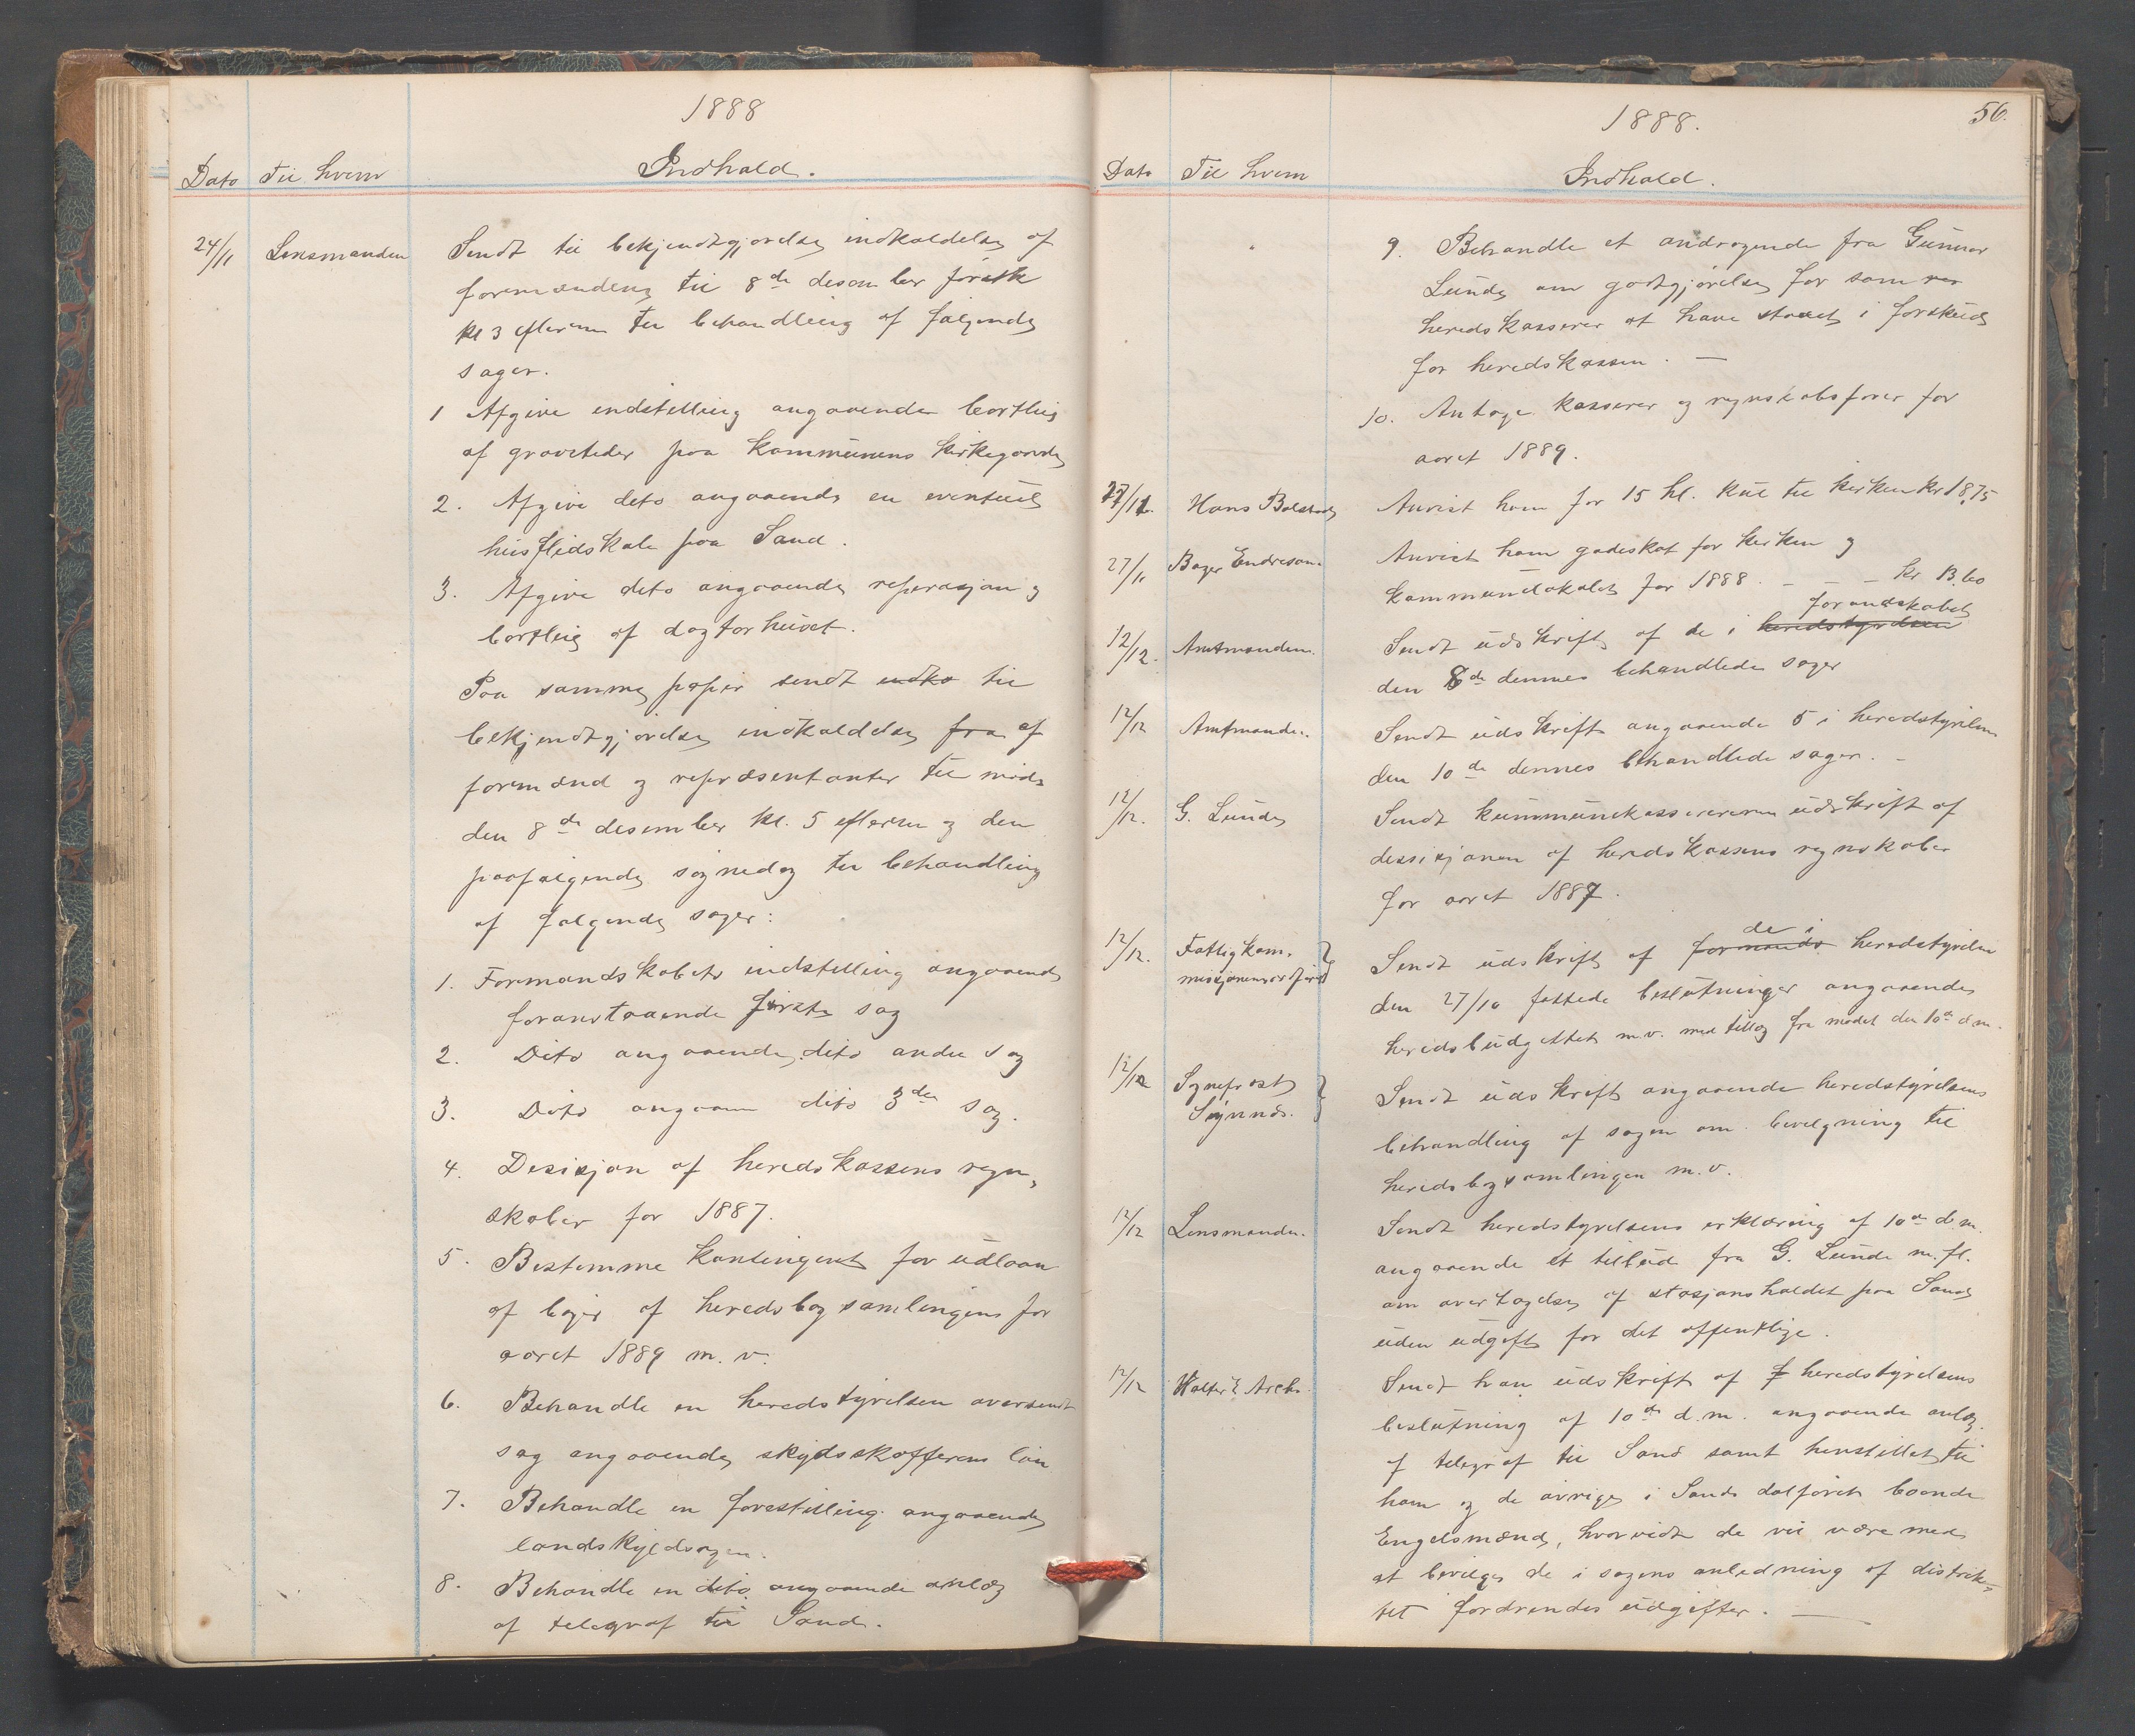 1888
Dato Til hvem Indhald.
24/11 Lensmanden Sendt til bekjendtgjørelse indkaldelse af
formændene til 8de desember førstk
kl 3 efterm til behandling af følgende
sager.
1 Afgive indstilling angaaende bortleie
af gravsteder paa kommunens kirkegaarde
2. Afgive dito angaaende en eventuel
husflidskole paa Sand.
3. Afgive dito angaaende reperasjon og
bortleie af dogtorhuset.
Paa samme papir sendt indka til
bekjendtgjørelse indkaldelse fra af
formænd og repræsentanter til møde
den 8de desember kl. 5 efterm og den
paafølgende søgnedag til behandling
af følgende sager:
1. Formandskabets indstilling angaaende
foranstaaende første sag
2. Dito angaaende dito anden sag
3. Dito angaaen dito 3die sag.
4. Desisjon af heredskassens regn-
skaber for 1887.
5. Bestemme kontingent for udlaan
af bøger af heredsbogsamlingens for
aaret 1889 m. v.
6. Behandle en heredstyrelsen oversendt
sag angaaende skydsskafferens løn
7. Behandle en forestilling angaaende
landskyldsagen.
8. Behandle en dito angaaende anlæg
af telegraf til Sand.
1888. 56.
Dato Til hvem Indhald.
9. Behandle et andragende fra Gunnar
Lunde om godtgjørelse for som
heredskasserer at have staaet i forskud
for heredskassen. —
10. Antage kasserer og regnskabsfører for
aaret 1889.
27/11. Hans Bolstad Anvist ham for 15 hl. kul til kirken kr 18,75
27/11 Bager Endresen. Anvist ham gadeskat for kirken og
kommunelokalet for 1888. - - - kr 13.60
formandskabet
12/12. Amtmanden. Sendt udskrift af de i heredstyrelsen
den 8de dennes behandlede sager
12/12 Amtmanden. Sendt udskrift angaaende 5 i heredstyrelsen
den 10de dennes behandlede sager. -
12/12. G. Lunde Sendt kummunekassereren udskrift af
dessisjonen af heredskassens regnskaber
for aaret 1887.
de i
12/12. Fattigkom- Sendt udskrift af formands heredstyrelsen
misjonens ordfører den 27/10 fattede beslutninger angaaende
heredsbudgettet m.v. med tillæg fra mødet den 10de d.m.
12/12 Sogneprest Sendt udskrift angaaende heredstyrelsens
behandling af sagen om bevilgning til
heredsbogsamlingen m.v.
12/12 Lensmanden. Sendt heredstyrelsens erklæring af 10de d.m.
angaaende et tilbud fra G. Lunde m.fl.
om overtagelse af stasjonsholdet paa Sand
uden udgift for det offentlige.
12/12 Walter E Archer Sendt ham udskrift af f heredstyrelsens
beslutning af 10de d.m. angaaende anlæg
af telegraf til Sand samt henstillet til
ham og de øvrige i Sands dalføret boende
Engelsmænd, hvorvidt de vil være med
at bevilge de i sagens anledning af distrik-
tet fordrendes udgifter. —